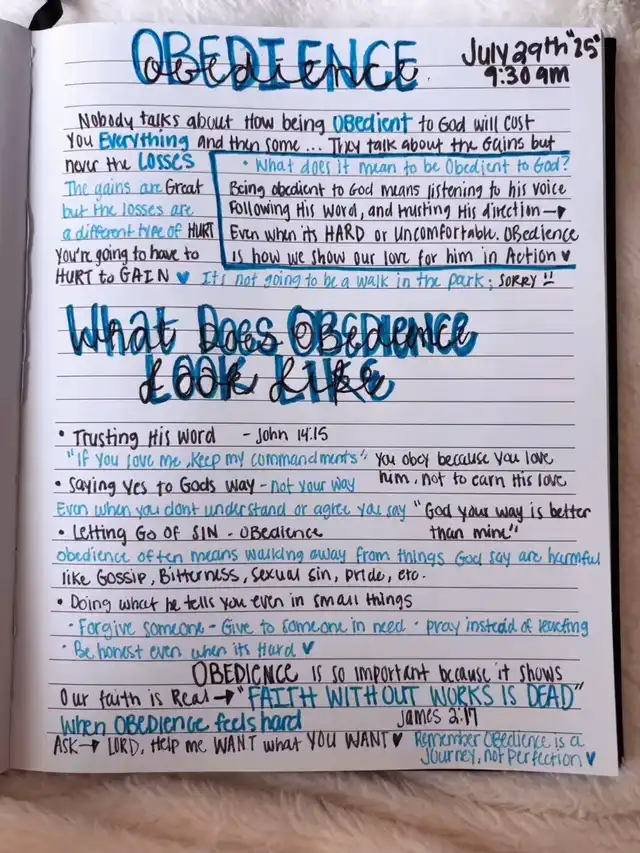 OBEDIENCE
obedience
July 29th "25"
9:30 am
Nobody talks about How being OBedient to God will cost
You Everything and then some... They talk about the Gains but
never the Losses
The gains are Great
but the losses are
a different type of HURT
You're going to have to
HURT to GAIN ♥ It's not going to be a walk in the park; SORRY !!
• What does it mean to be Obedient to God?
Being obedient to God means listening to his voice
Following His Word, and trusting His direction →
Even when its HARD or Uncomfortable. OBedience
is how we show our love for him in Action ♥
What Does OBedience
Look Like
• Trusting His Word - John 14:15
"If you love me, Keep my commandments" you obey because you love
him, not to earn His love
• Saying Yes to Gods way - not your way
Even when you dont understand or agree you say "God your way is better
than mine"
• Letting Go OF SIN - OBedience
obedience often means walking away from things God say are harmful
like Gossip, Bitterness, Sexual sin, pride, etc.
• Doing what he tells you even in small things
- Forgive someone - Give to someone in need - pray instead of reacting
• Be honest even when its Hard ♥
OBEDIENCE is so important because it shows
Our faith is Real → "FAITH WITHOUT WORKS IS DEAD"
James 2:17
When OBEDIENCE feels hard
ASK → LORD, Help me WANT what YOU WANT ♥ Remember OBedience is a
Journey, not perfection ♥